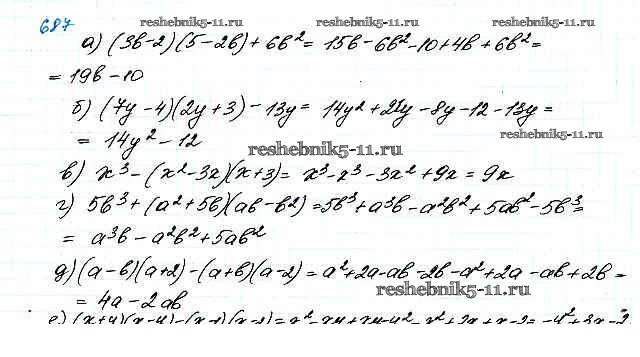 687
reshebnik5-11.ru
reshebnik5-11.ru
а) (3b-2)(5-2b)+6b² = 15b-6b²-10+4b+6b² =
= 19b-10
б) (7y-4)(2y+3)-13y = 14y²+21y-8y-12-13y =
= 14y²-12
reshebnik5-11.ru
reshebnik5-11.ru
в) x³-(x²-3x)(x+3) = x³-x³-3x²+9x = 9x
г) 5b³+(a²+5b)(ab-b²) = 5b³+a³b-a²b²+5ab²-5b³ =
= a³b-a²b²+5ab²
д) (a-b)(a+2)-(a+b)(a-2) = a²+2a-ab-2b-a²+2a-ab+2b =
= 4a-2ab
reshebnik5-11.ru
reshebnik5-11.ru